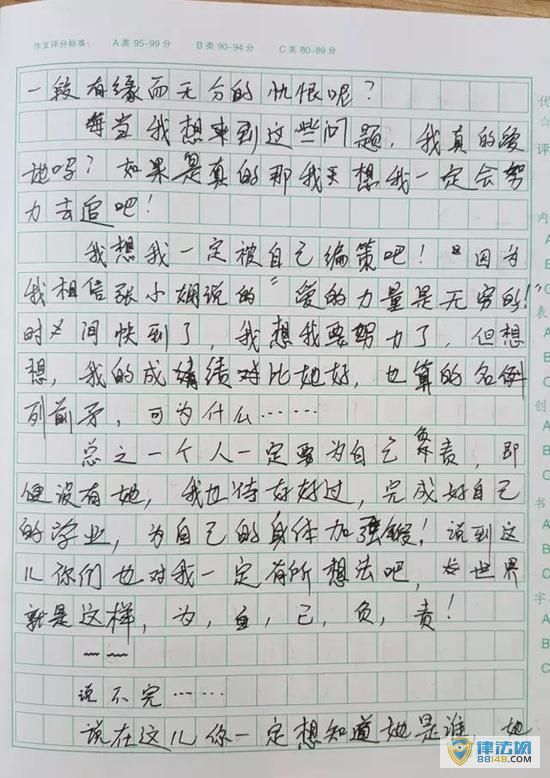 作文评分标准： A类95-99分 B类90-94分 C类80-89分
一段有缘而无分的仇恨呢？
每当我想来到这些问题，我真的爱
她吗？如果是真的那我天想我一定会努
力去追吧！
我想我一定被自己编策吧！“因为
我相信张小娴说的“爱的力量是无穷的！”
时间快到了，我想我要努力了，但想
想，我的成绩对比她好，也算的名例
列前矛，可为什么……
总之一个人一定要为自己负责，即
便没有她，我也待好好过，完成好自己
的学业，为自己的身体加强锻！说到这
儿你们也对我一定有所想法吧，世界
就是这样，为，自，己，负，责！
~~
说不完……
说在这儿你一定想知道她是谁，她
优
☆
评
内
A
B
C
表
A
B
C
创
A
B
C
书
A
B
C
字
A
B
C
律法网
88148.com